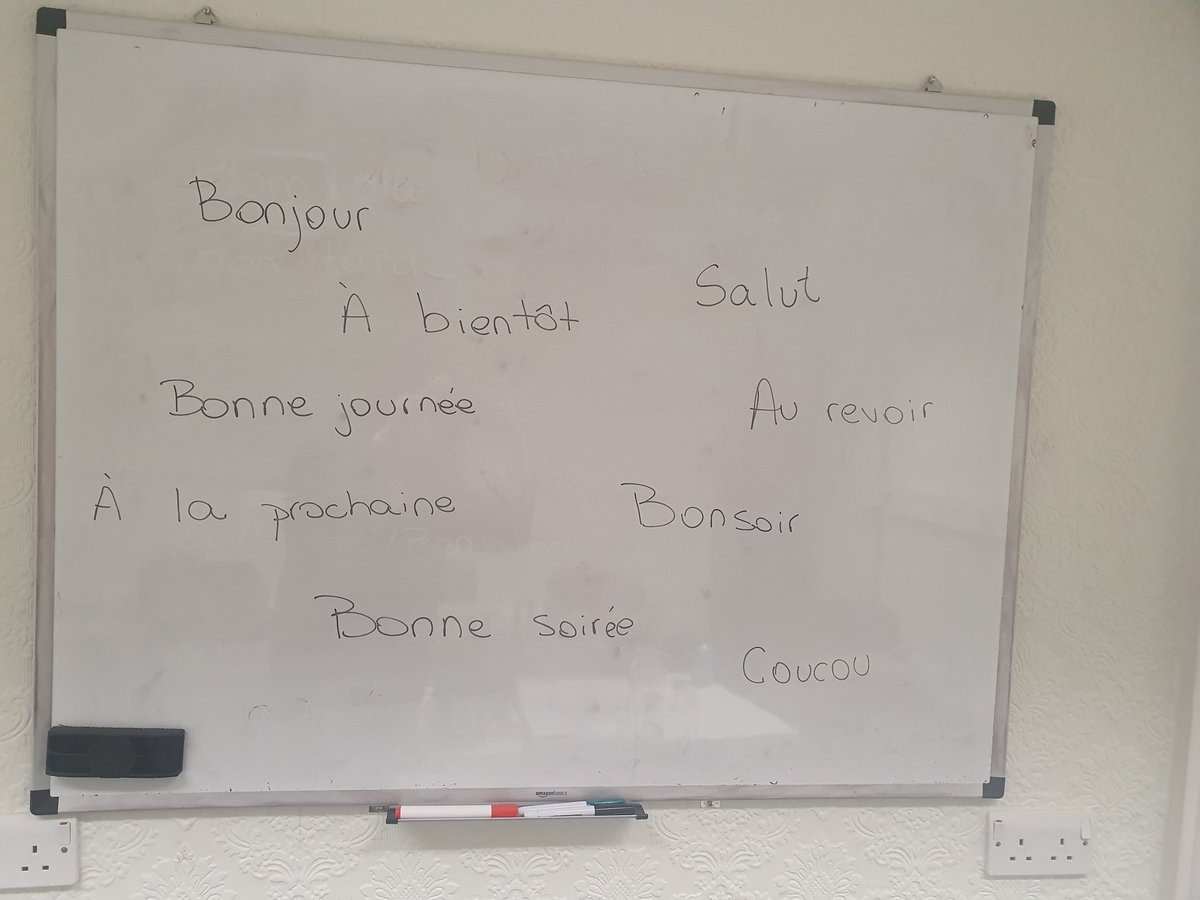 Bonjour
Salut
À bientôt
Bonne journée
Au revoir
À la prochaine
Bonsoir
Bonne soirée
Coucou
amazonbasics